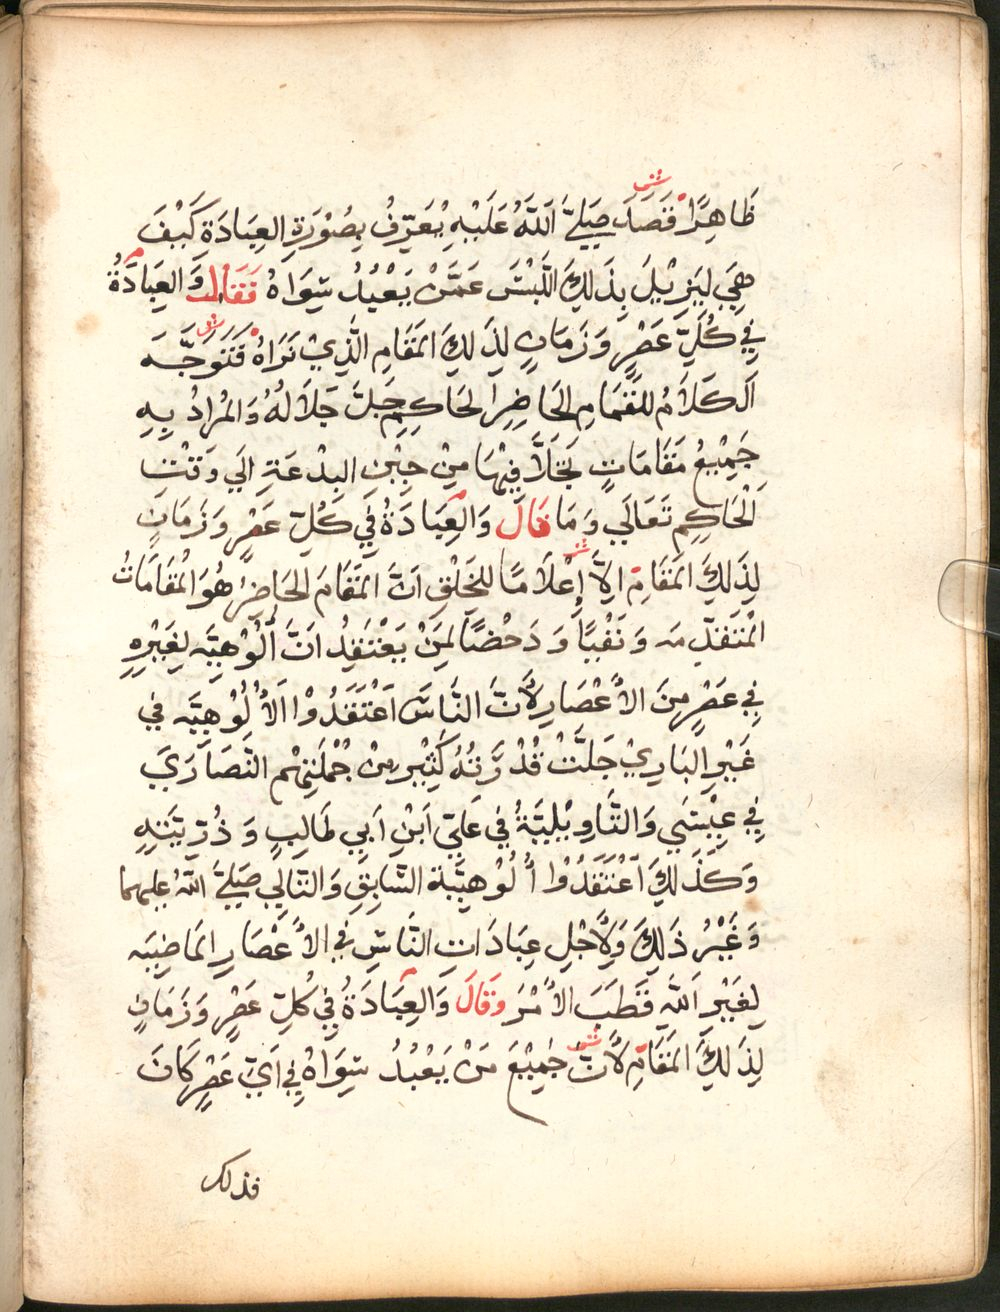 شر
ظَاهِرًا فَقَصَدَ صَلَّي اَللَّهُ عَلَيْهِ يُعَرِّفُ بِصُوْرَةِ العِبَادَةِ كَيْفَ
هِيَ لِيَزِيْلَ بِذَلِكَ اللَّبْسَ عَمَّنْ يَعْبُدُ سِوَاهُ فَقَالَ وَالعِبَادَةُ
فِي كُلِّ عَصْرٍ وَزَمَانٍ لِذَلِكَ المَقَامِ الَّذِيْ نَرَاهُ شر فَتَوَجَّهَ
اَلكَلَامُ لِلمَقَامِ الحَاضِرِ الحَاكِمِ جَلَّ جَلَالَهُ وَالمُرَادُ بِهِ
جَمِيْعُ مَقَامَاتٍ تَجَلَّا فِيْهَا مِنْ حِيْنِ البِدْعَةِ اِلَي وَقْتِ
اَلْحَاكِمِ تَعَالَي وَمَا قَالَ وَالعِبَادَةُ فِي كُلِّ عَصْرٍ وَزَمَانٍ
لِذَلِكَ المَقَامِ شر اِلَّا إِعْلَامًا لِلخَلْقِ اَنَّ المَقَامَ الحَاضِرُ هُوَ المْقَامَاتُ
المْتَقَدِّمَه وَنَفْيًا وَدَحْضًا لِمَنْ يَعْتَقِدُ اَنَّ اَلُوْهِيَّه لِغَيْرِهِ
فِي عَصْرٍ مِنَ الأَعْصَارِ لأَنَّ النَّاسَ اَعْتَقَدُوْا الأُلُوْهِيَّه فِي
غَيْرِ البَارِيْ جَلَّتْ قُدْرَتُهُ كَثِيْر مِنْ جُمْلَتِهِم النَّصَارَيَ
فِي عِيْسَي وَالتَّاوِيْلِيَّةُ فِي عَلِيّ اَبْنِ اَبِي طَالِبٍ وَذُرِّيَّتِهِ
وَكَذَلِكَ اَعْتَقَدُوْا أُلُوْهِيَّةَ السَّابِقِ وَالتَّالِي صَلَّي اللَّهُ عليهما
وَغَيْرُ ذَلِكَ وَلأَجْلِ عِبَادَاتِ النَّاسِ فِي الأَعْصَارِ المَاضِيَه
لِغَيْرِ اَللَّه فَقَطَبَ الأَمْرَ وَقَالَ وَالعِبَادَةُ فِي كُلِّ عَصْرٍ وَزَمَانٍ
لِذَلِكَ المَقَامِ شر لأَنَّ جَمِيْعَ مَنْ يَعْبُدُ سِوَاهُ فِي اَيِّ عَصْرٍ كَانَ
فذلك